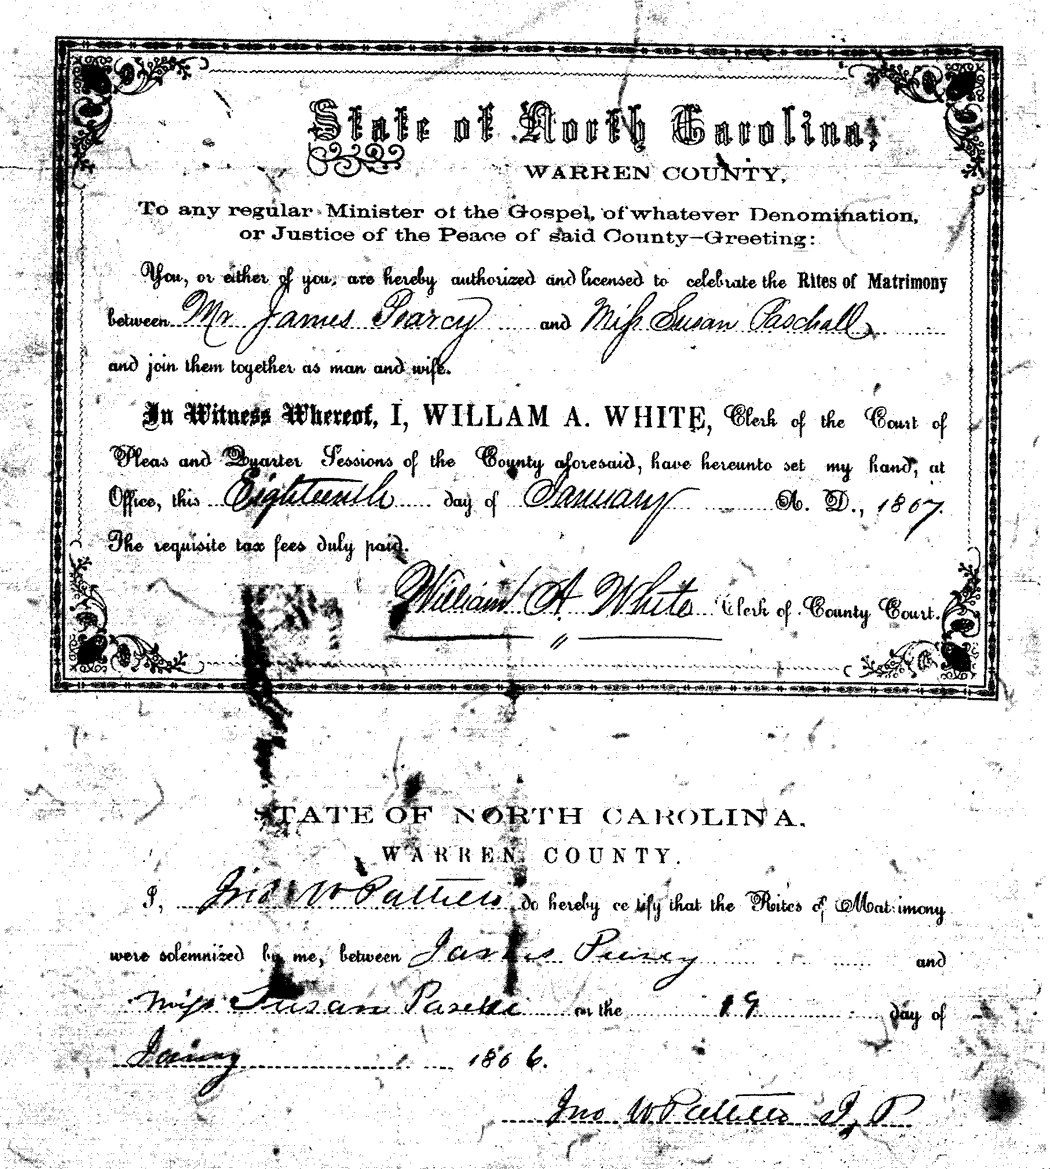 State of North Carolina,
WARREN COUNTY,
To any regular Minister of the Gospel, of whatever Denomination,
or Justice of the Peace of said County—Greeting:
You, or either of you, are hereby authorized and licensed to celebrate the Rites of Matrimony
between Mr James Pearcy and Miss Susan Paschall,
and join them together as man and wife.
In Witness Whereof, I, WILLAM A. WHITE, Clerk of the Court of
Pleas and Quarter Sessions of the County aforesaid, have hereunto set my hand, at
Office, this Eighteenth day of January A. D., 1867.
The requisite tax fees duly paid.
William A White Clerk of County Court.
STATE OF NORTH CAROLINA.
WARREN COUNTY.
I, Jno W do hereby certify that the Rites of Matrimony
were solemnized by me, between James and
Miss Susan on the 19 day of
1866.
Jno W J, P